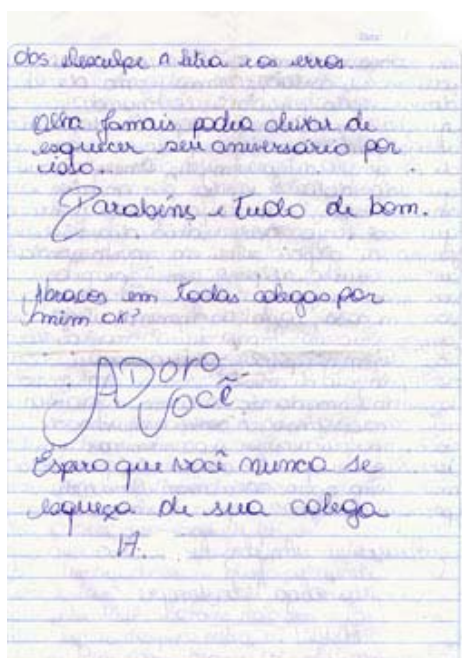 Obs desculpe a letra e os erros.
Olha jamais podia deixar de
esquecer seu aniversário por
isso...
Parabéns e tudo de bom.
Abraços em todas colegas por
mim ok?
ADoro
você
Espero que você nunca se
esqueça de sua colega